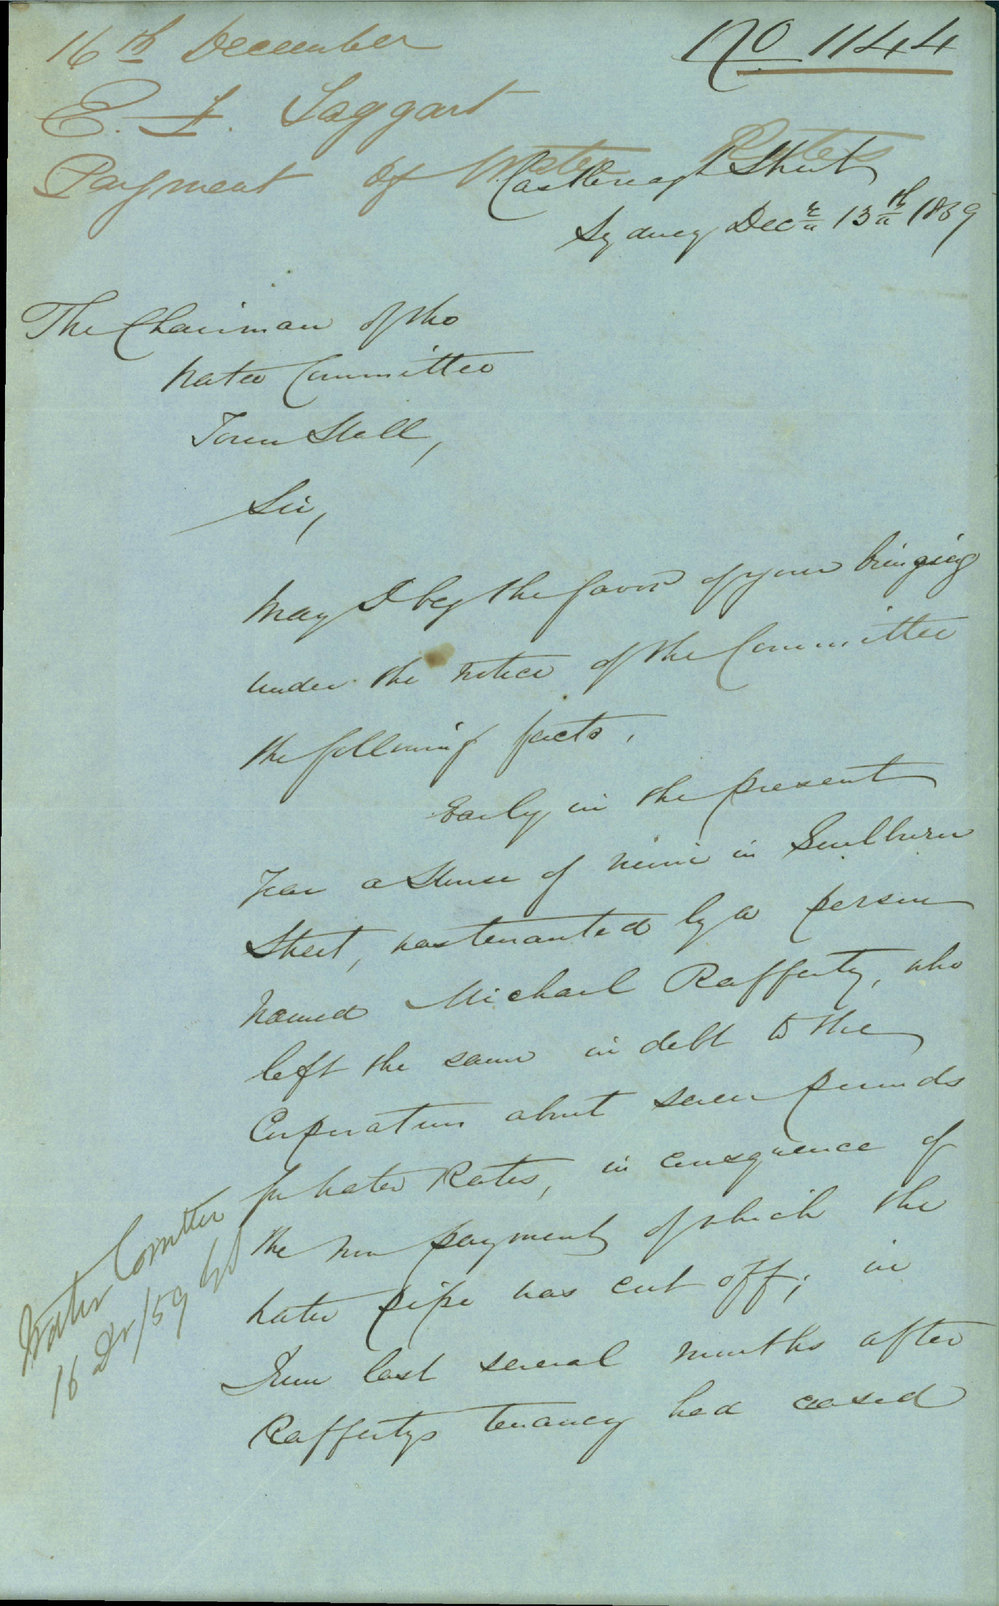 16th December
No 1144
E. F. Taggart
Payment of Water Rates
Castlereagh Street
Sydney Decr 13th 1859
The Chairman of the
Water Committee
Town Hall,
Sir,
May I beg the favor of your bringing
under the notice of the Committee
the following facts.
Early in the present
Year a House of mine in Goulburn
Street, was tenanted by a person
named Michael Rafferty, who
left the same in debt to the
Corporation about seven pounds
for Water Rates, in consequence of
the non payment of which the
water pipe was cut off; in
June last several months after
Raffertys tenancy had ceased
Water Comttee
16 Dr/59